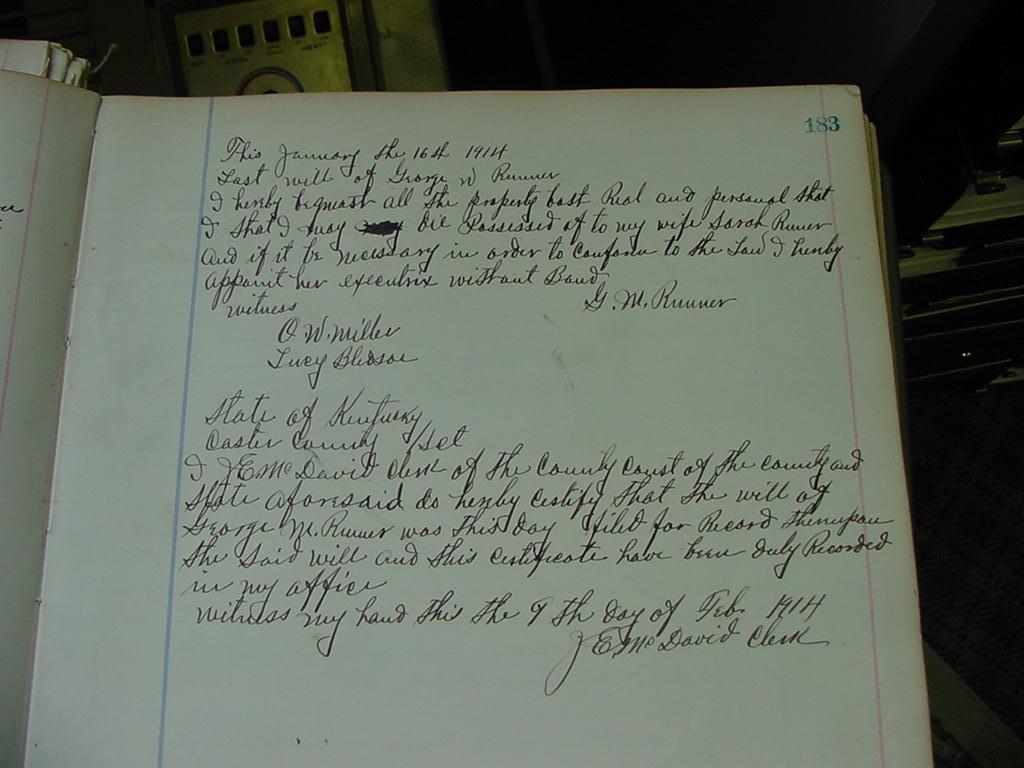 183
This January the 16th 1914
Last will of George W Runner
I hereby bequeath all the property bost Real and personal that
I that I may die Possessed of to my wife Sarah Runner
and if it be necessary in order to conform to the Law I hereby
appoint her executrix without Bond
G. M. Runner
witness
O. W. Miller
Lucy Bledsoe
State of Kentucky
Caster County /sct
I J E McDavid Clerk of the County Court of the county and
State aforesaid do hereby certify that the will of
George M. Runner was this day filed for Record thereupon
the said will and this certificate have been duly Recorded
in my office
witness my hand this the 9th day of Feb. 1914
J E McDavid Clerk